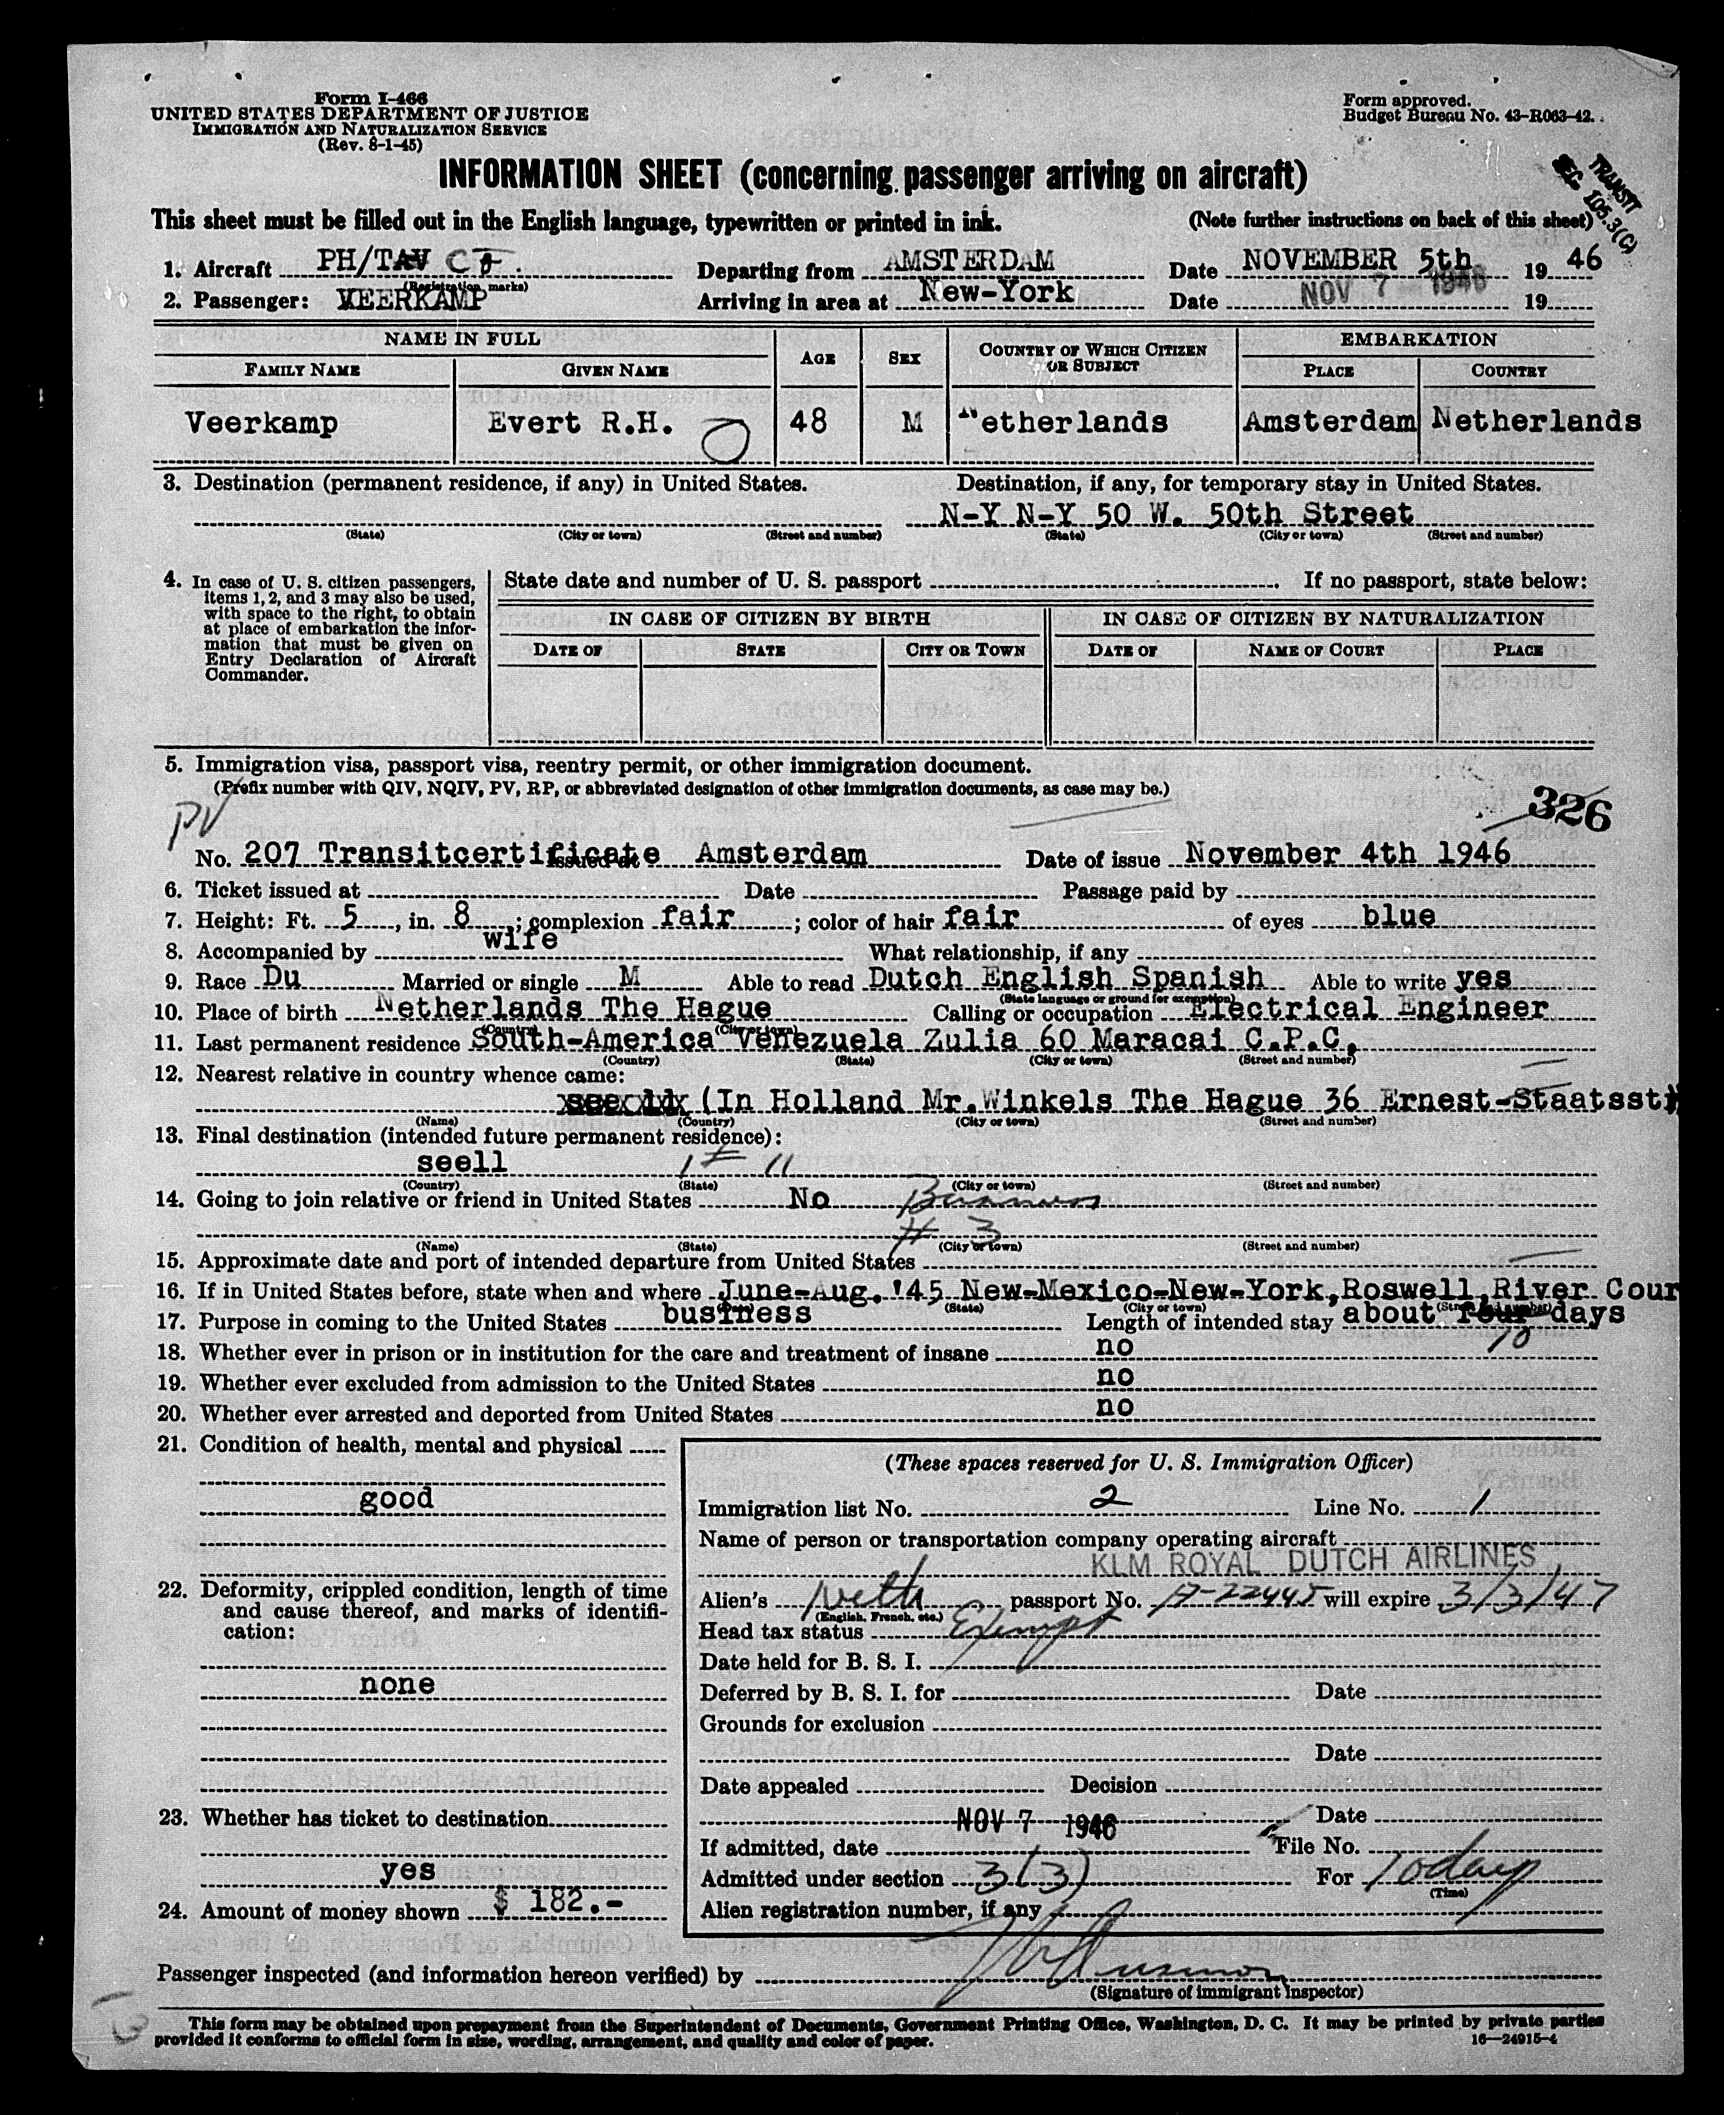 Form I-466
UNITED STATES DEPARTMENT OF JUSTICE
IMMIGRATION AND NATURALIZATION SERVICE
(Rev. 8-1-45)
Form approved.
Budget Bureau No. 43-R063-42.
INFORMATION SHEET (concerning passenger arriving on aircraft)
TRANSIT
SEC. 105.3(C)
This sheet must be filled out in the English language, typewritten or printed in ink. (Note further instructions on back of this sheet)
1. Aircraft PH/TAV C F. Departing from AMSTERDAM Date NOVEMBER 5th 1946
(Registration marks)
2. Passenger: VEERKAMP Arriving in area at New-York Date NOV 7 - 1946 19
NAME IN FULL AGE SEX COUNTRY OF WHICH CITIZEN OR SUBJECT EMBARKATION
FAMILY NAME GIVEN NAME PLACE COUNTRY
Veerkamp Evert R.H. 48 M Netherlands Amsterdam Netherlands
3. Destination (permanent residence, if any) in United States. Destination, if any, for temporary stay in United States.
N-Y N-Y 50 W. 50th Street
(State) (City or town) (Street and number) (State) (City or town) (Street and number)
4. In case of U. S. citizen passengers, items 1, 2, and 3 may also be used, with space to the right, to obtain at place of embarkation the information that must be given on Entry Declaration of Aircraft Commander.
State date and number of U. S. passport . If no passport, state below:
IN CASE OF CITIZEN BY BIRTH IN CASE OF CITIZEN BY NATURALIZATION
DATE OF STATE CITY OR TOWN DATE OF NAME OF COURT PLACE
5. Immigration visa, passport visa, reentry permit, or other immigration document.
(Prefix number with QIV, NQIV, PV, RP, or abbreviated designation of other immigration documents, as case may be.)
PV
326
No. 207 Transitcertificate Issued at Amsterdam Date of issue November 4th 1946
6. Ticket issued at Date Passage paid by
7. Height: Ft. 5, in. 8; complexion fair; color of hair fair of eyes blue
8. Accompanied by wife What relationship, if any
9. Race Du Married or single M Able to read Dutch English Spanish Able to write yes
(State language or ground for exemption)
10. Place of birth Netherlands The Hague Calling or occupation Electrical Engineer
(Country) (City or town)
11. Last permanent residence South-America Venezuela Zulia 60 Maracai C.P.C.
(Country) (State) (City or town) (Street and number)
12. Nearest relative in country whence came:
see 11 (In Holland Mr.Winkels The Hague 36 Ernest-Staatsst
(Name) (Country) (City or town) (Street and number)
13. Final destination (intended future permanent residence):
seell # 11
(Country) (State) (City or town) (Street and number)
14. Going to join relative or friend in United States No Business
# 3
(Name) (State) (City or town) (Street and number)
15. Approximate date and port of intended departure from United States
16. If in United States before, state when and where June-Aug.'45 New-Mexico-New-York,Roswell,River Cour
(State) (City or town) (Street and number)
17. Purpose in coming to the United States business Length of intended stay about four days
10
18. Whether ever in prison or in institution for the care and treatment of insane no
19. Whether ever excluded from admission to the United States no
20. Whether ever arrested and deported from United States no
21. Condition of health, mental and physical
good
22. Deformity, crippled condition, length of time and cause thereof, and marks of identification:
none
23. Whether has ticket to destination
yes
24. Amount of money shown $ 182.-
(These spaces reserved for U. S. Immigration Officer)
Immigration list No. 2 Line No. 1
Name of person or transportation company operating aircraft
KLM ROYAL DUTCH AIRLINES
Alien's Neth passport No. 17-22445 will expire 3/3/47
(English, French, etc.)
Head tax status Exempt
Date held for B. S. I.
Deferred by B. S. I. for Date
Grounds for exclusion
Date
Date appealed Decision
NOV 7 1946 Date
If admitted, date File No.
Admitted under section 3(3) For 10 days
(Time)
Alien registration number, if any
Passenger inspected (and information hereon verified) by
(Signature of immigrant inspector)
This form may be obtained upon prepayment from the Superintendent of Documents, Government Printing Office, Washington, D. C. It may be printed by private parties
provided it conforms to official form in size, wording, arrangement, and quality and color of paper. 16—24915-4